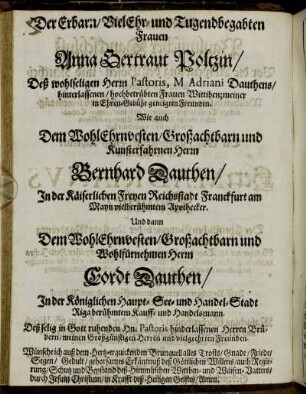 Der Erbarn/ VielEhr- und Tugendbegabten
Frauen
Anna Gertraut Poltzin/
Deß wohlseligen Herrn Pastoris, M. Adriani Dauthens/
hinterlassenen/ hochbetrübten Frauen Wittiben; meiner
in Ehren-Gebühr geneigten Freundin.
Wie auch
Dem WohlEhrnvesten/ Großachtbarn und
Kunsterfahrnen Herrn
Bernhard Dauthen/
In der Käiserlichen Freyen Reichsstadt Franckfurt am
Mayn vielberühmtem Apothecker.
Und dann
Dem WohlEhrnvesten/ Großachtbarn und
Wohlfürnehmen Herrn
Cordt Dauthen/
In der Königlichen Haupt- See- und Handel-Stadt
Riga berühmtem Kauff- und Handelsmann.
Deß selig in Gott ruhenden Hn. Pastoris hinderlassenen Herren Brü-
dern/ meinen Großgünstigen Herren und vielgeehrten Freunden.
Wünsche ich auß dem Hertz-erquickenden Brunquell alles Trosts/ Gnade/ Friede/
Segen/ Gedult/ gehorsames Erkäntnuß deß Göttlichen Willens, auch Regie-
rung, Schutz und Beystand deß Himmlischen Wittben- und Wäisen-Vatters/
durch Jesum Christum/ in Krafft deß Heiligen Geistes/ Amen.